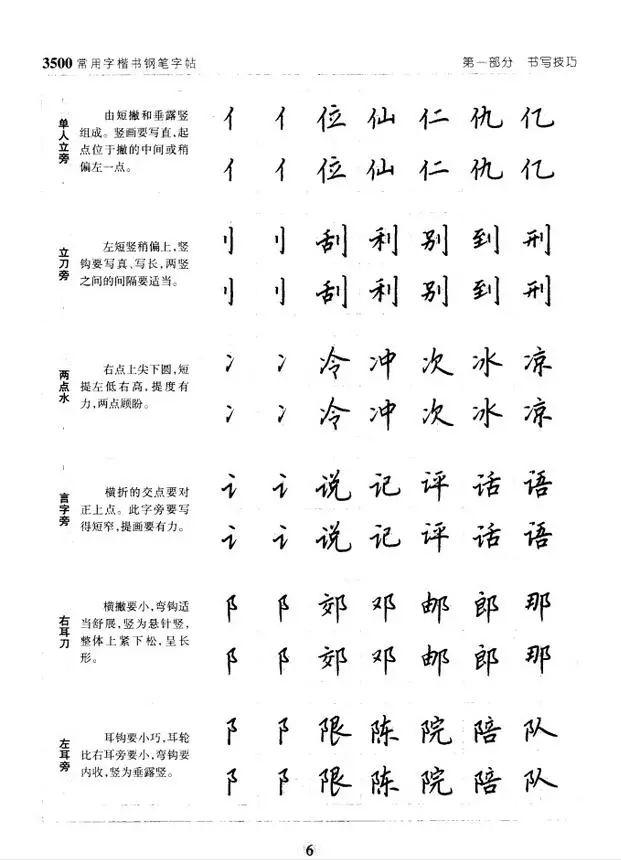 3500常用字楷书钢笔字帖 第一部分 书写技巧
单人立旁
由短撇和垂露竖
组成。竖画要写直,起
点位于撇的中间或稍
偏左一点。
亻 亻 位 仙 仁 仇 亿
亻 亻 位 仙 仁 仇 亿
立刀旁
左短竖稍偏上,竖
钩要写真、写长,两竖
之间的间隔要适当。
刂 刂 刮 利 别 到 刑
刂 刂 刮 利 别 到 刑
两点水
右点上尖下圆,短
提左低右高,提度有
力,两点顾盼。
冫 冫 冷 冲 次 冰 凉
冫 冫 冷 冲 次 冰 凉
言字旁
横折的交点要对
正上点。此字旁要写
得短窄,提画要有力。
讠 讠 说 记 评 话 语
讠 讠 说 记 评 话 语
右耳刀
横撇要小,弯钩适
当舒展,竖为悬针竖,
整体上紧下松,呈长
形。
阝 阝 郊 邓 邮 郎 那
阝 阝 郊 邓 邮 郎 那
左耳旁
耳钩要小巧,耳轮
比右耳旁要小,弯钩要
内收,竖为垂露竖。
阝 阝 限 陈 院 陪 队
阝 阝 限 陈 院 陪 队
6